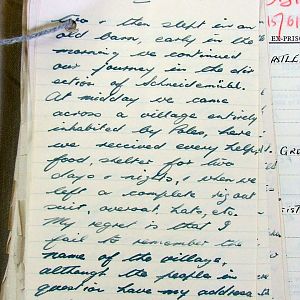 then slept in an
old barn, early in the
morning we continued
our journey in the dir
ection of Schneidemühl.
At midday we came
across a village entirely
inhabited by Poles, here
we received every help,
food, shelter for two
days & nights, & when we
left a complete rig out
suit, overcoat, hats, etc.
My regret is that I
fail to remember the
name of the village,
although the people in
question have my address
EX-PRIS